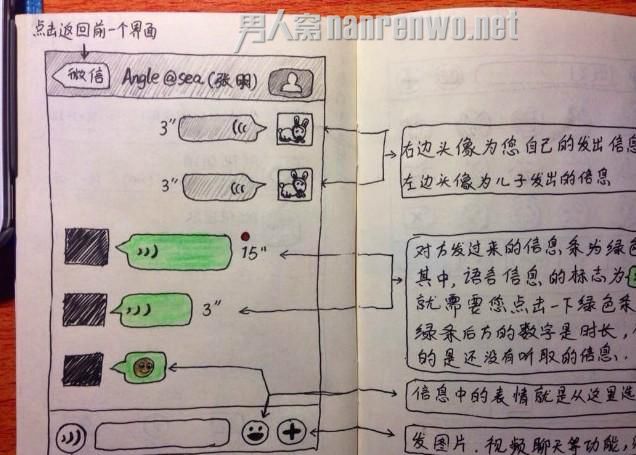 男人窝 nanrenwo.net
点击返回前一个界面
微信 Angle@sea(张明)
3"
右边头像为您自己的发出信息
3"
左边头像为儿子发出的信息
对方发过来的信息条为绿色
15"
其中,语音信息的标志为
就需要您点击一下绿色条
3"
绿条后方的数字是时长,
的是还没有听取的信息.
信息中的表情就是从这里选
发图片.视频聊天等功能,